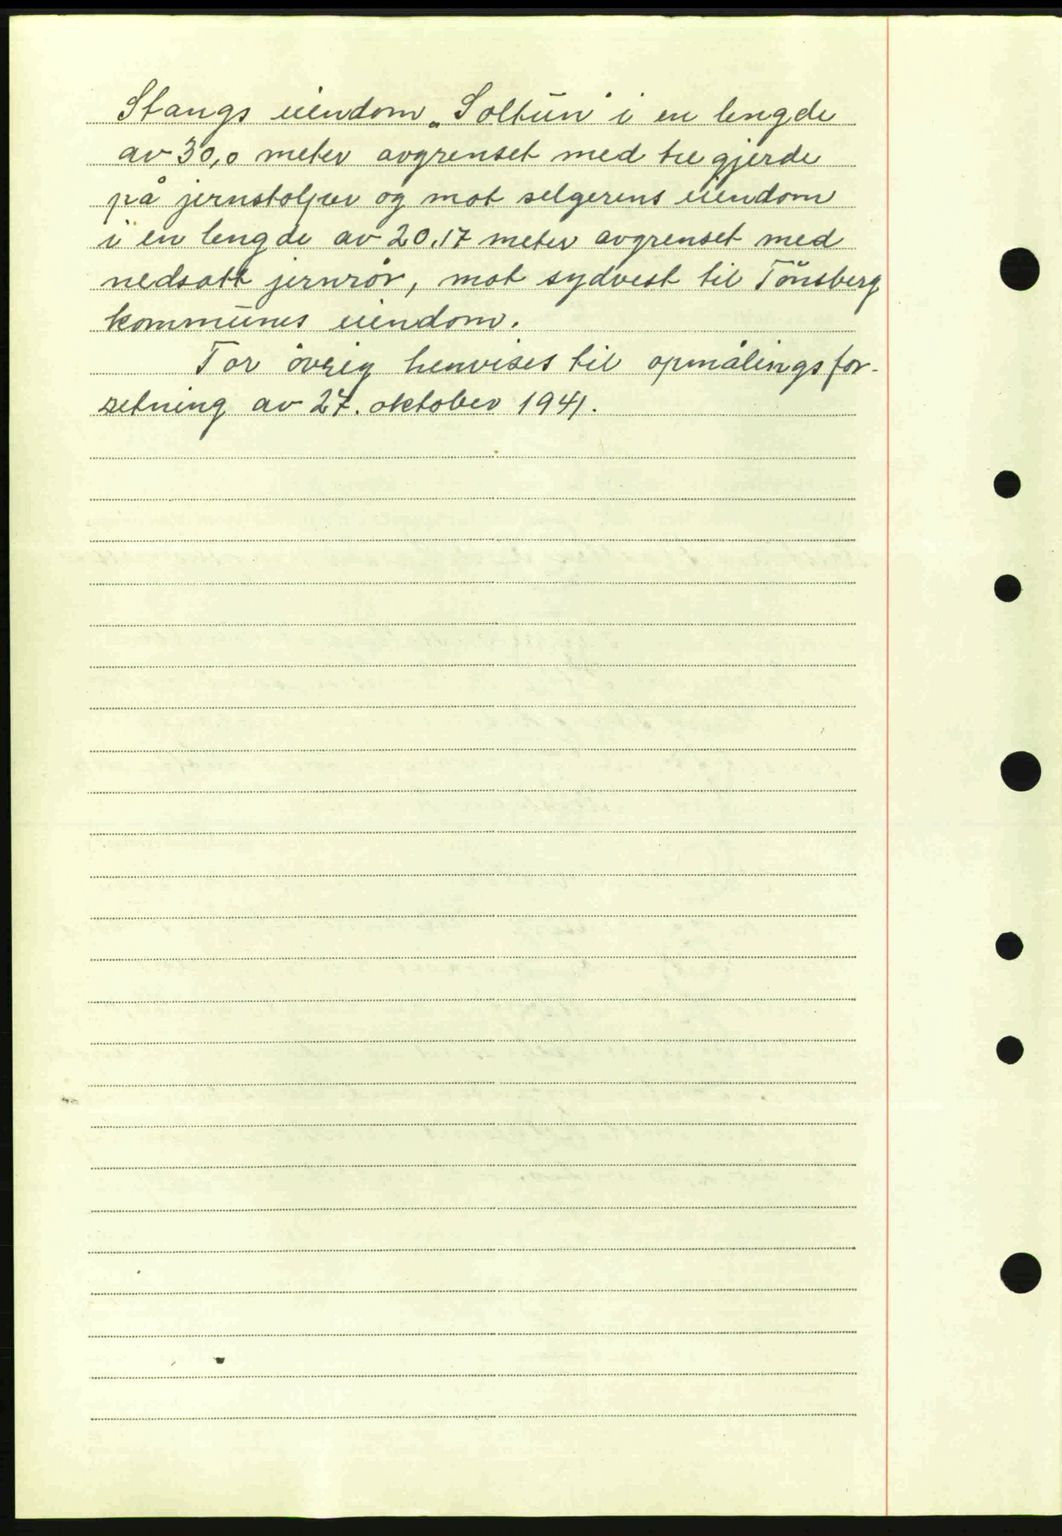 Stangs eiendom „Soltun" i en lengde
av 30,0 meter avgrenset med tre gjerde
på jernstolper og mot selgerens eiendom
i en lengde av 20.17 meter avgrenset med
nedsatt jernrör, mot sydvest til Tönsberg
kommunes eiendom.
For övrig henvises til opmålingsfor-
retning av 27. oktober 1941.